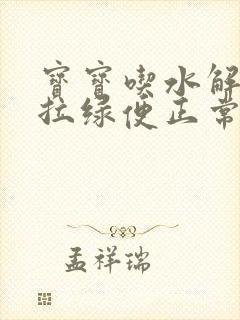 寶寶喫水解
拉绿便正常
孟祥瑞